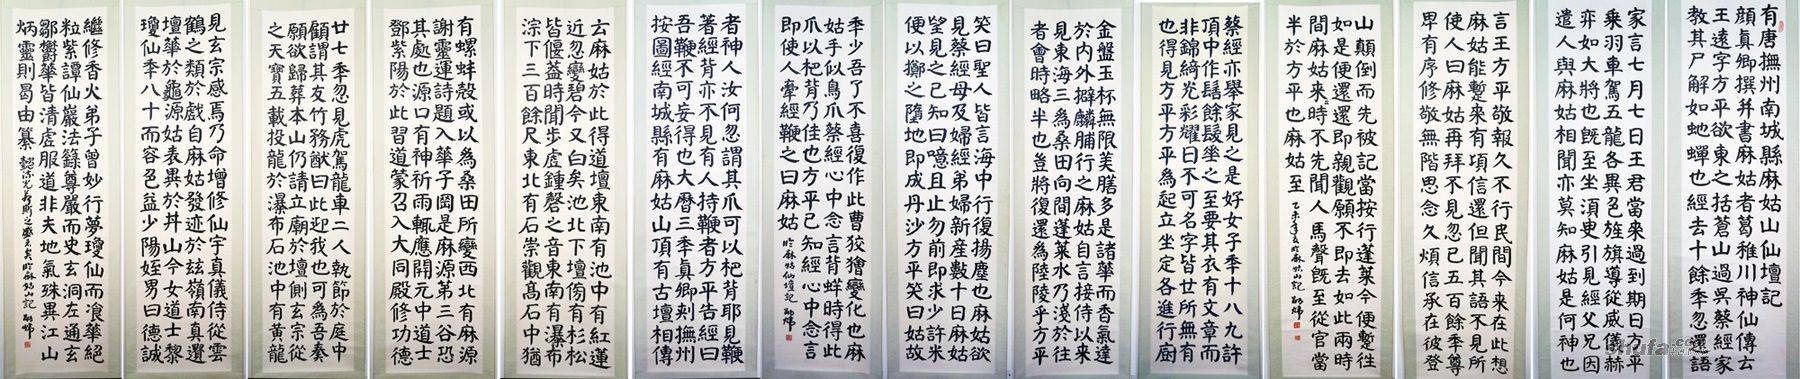 有唐撫州南城縣麻姑山仙壇記
顔真卿撰并書麻姑者葛稚川神仙傳云
王遠字方平欲東之括蒼山過吳蔡經家
教其尸解如虵蟬也經去十餘季忽還語
家言七月七日王君當來過到期日方平
乘羽車駕五龍各異色旌旗導從威儀赫
弈如大將也旣至坐湏臾引見經父兄因
遣人與麻姑相聞亦莫知麻姑是何神也
言王方平敬報久不行民間今來在此想
麻姑能蹔來有頃信還但聞其語不見所
使人曰麻姑再拜不見忽已五百餘季尊
卑有序修敬無階思念久煩信承在彼登
山顛倒而先被記當按行蓬萊今便蹔往
如是便還還即親觀願不即去如此兩時
間麻姑來時不先聞人馬聲旣至從官當
半於方平也麻姑至
蔡經亦舉家見之是好女子季十八九許
頂中作髻餘髮垂之至要其衣有文章而
非錦綺光彩耀日不可名字皆世所無有
也得見方平方平為起立坐定各進行廚
金盤玉杯無限美膳多是諸華而香氣達
於内外擗麟脯行之麻姑自言接侍以來
見東海三為桑田向間蓬萊水乃淺於往
者會時略半也豈將復還為陸陵乎方平
笑曰聖人皆言海中行復揚塵也麻姑欲
見蔡經母及婦經弟婦新產數十日麻姑
望見之已知曰噫且止勿前即求少許米
便以擲之墮地即成丹沙方平笑曰姑故
季少吾了不喜復作此曹狡獪變化也麻
姑手似鳥爪蔡經心中念言背蛘時得此
爪以杷背乃佳也方平已知經心中念言
即使人牽經鞭之曰麻姑
者神人汝何忽謂其爪可以杷背耶見鞭
著經背亦不見有人持鞭者方平告經曰
吾鞭不可妄得也大曆三季真卿刺撫州
按圖經南城縣有麻姑山頂有古壇相傳
云麻姑於此得道壇東南有池中有紅蓮
近忽變碧今又白矣池北下壇傍有杉松
皆偃蓋時聞步虛鍾磬之音東南有瀑布
淙下三百餘尺東北有石崇觀高石中猶
有螺蚌殼或以為桑田所變西北有麻源
謝靈運詩題入華子岡是麻源第三谷恐
其處也源口有神祈雨輒應開元中道士
鄧紫陽於此習道蒙召入大同殿修功德
廿七季忽見虎駕龍車二人執節於庭中
顧謂其友竹務猷曰此迎我也可為吾奏
願欲歸葬本山仍請立廟於壇側玄宗從
之天寶五載投龍於瀑布石池中有黃龍
見玄宗感焉乃命增修仙宇真儀侍從雲
鶴之類於戲自麻姑發迹於玆嶺南真遺
壇華於龜源姑表異於井山今女道士黎
瓊仙季八十而容色益少陽姪男曰德誠
繼修香火弟子曾妙行夢瓊仙而浪華絕
粒紫譚仙巖法籙尊嚴而史玄洞左通玄
鄒鬱華皆清虛服道非夫地氣殊異江山
炳靈則曷由纂